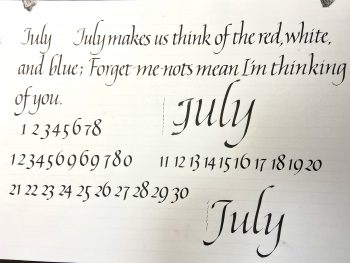 July July makes us think of the red, white,
and blue; Forget me-nots mean I'm thinking
of you.
July
1 2 3 4 5 6 7 8
1 2 3 4 5 6 9 6 9 7 8 0 11 12 13 14 15 16 17 18 19 20
21 22 23 24 25 26 27 28 29 30
July